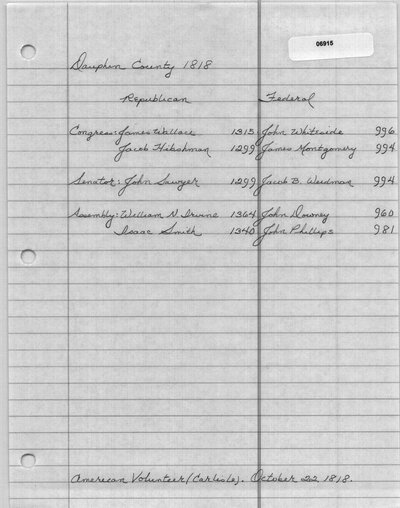 06915
Dauphin County 1818
Republican Federal
Congress: James Wallace 1315 John Whiteside 996
Jacob Hibshman 1299 James Montgomery 994
Senator: John Sawyer 1299 Jacob B. Weidman 994
Assembly: William N. Irvine 1364 John Downey 960
Isaac Smith 1340 John Phillips 981
American Volunteer (Carlisle). October 22, 1818.